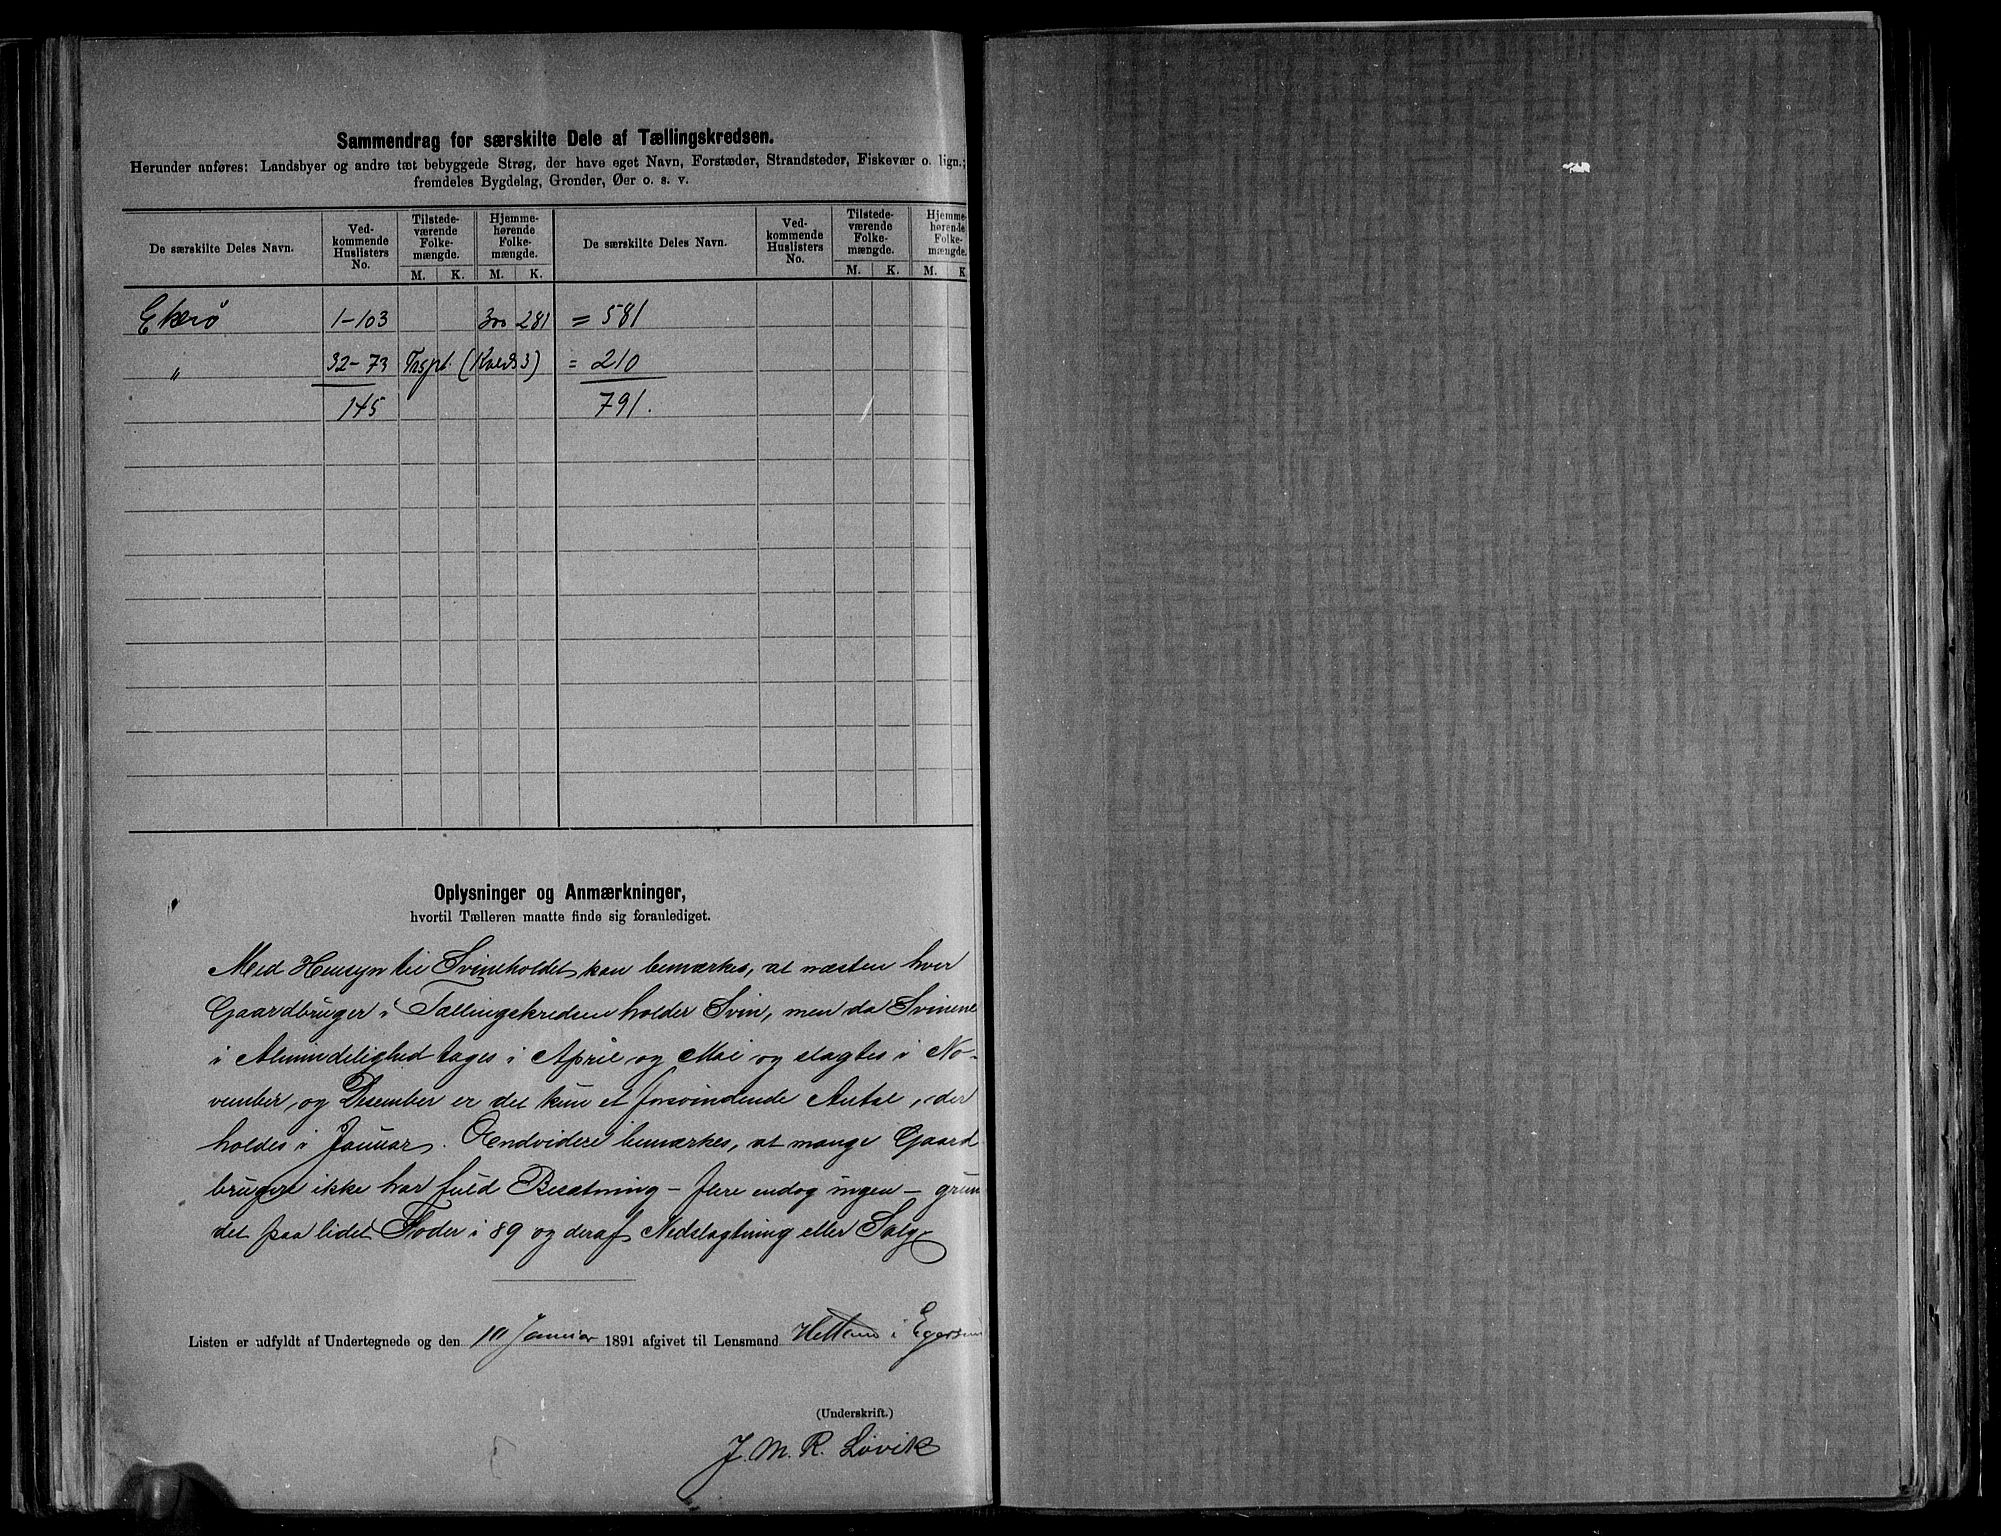 Sammendrag for særskilte Dele af Tællingskredsen.
Herunder anføres: Landsbyer og andre tæt bebyggede Strøg, der have eget Navn, Forstæder, Strandsteder, Fiskevær o. lign.;
fremdeles Bygdelag, Grender, Øer o. s. v.
De særskilte Deles Navn. Ved-kommende Huslisters No. Tilstede-værende Folke-mængde. Hjemme-hørende Folke-mængde. De særskilte Deles Navn. Ved-kommende Huslisters No. Tilstede-værende Folke-mængde. Hjemme-hørende Folke-mængde.
M. K. M. K. M. K. M. K
Ekerø 1-103 300 281 = 581
" 32-73 Trspt. (Kreds 3) = 210
145 791.
Oplysninger og Anmærkninger,
hvortil Tælleren maatte finde sig foranlediget.
Med Hensyn til Svineholdet kan bemærkes, at næsten hver
Gaardbruger i Tællingskredsen holder Svin, men da Svinene
i Almindelighed tages i April og Mai og slagtes i No-
vember og Desember er det kun et forsvindende Antal, der
holdes i Januar. Endvidere bemærkes, at mange Gaard
brugere ikke har fuld Besætning - flere endog ingen - grun
det paa lidet Foder i 89 og deraf Nedslagtning eller Salg
Listen er udfyldt af Undertegnede og den 10 Januar 1891 afgivet til Lensmand i Egersun
(Underskrift.)
J. M. R. Løvik